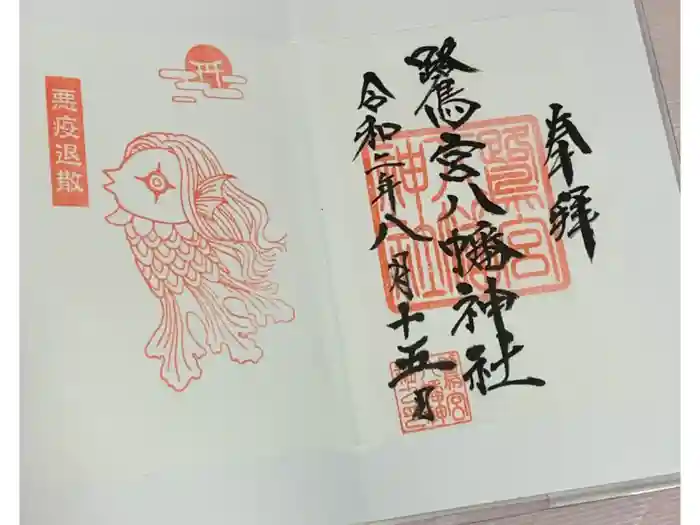 奉拝
鷺宮八幡神社
令和二年八月十五日
悪疫退散